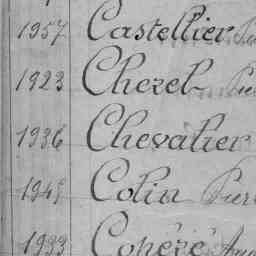 1957 Castellier
1923 Chezel
1936 Chevalier
1945 Colin
1933 Cohéré